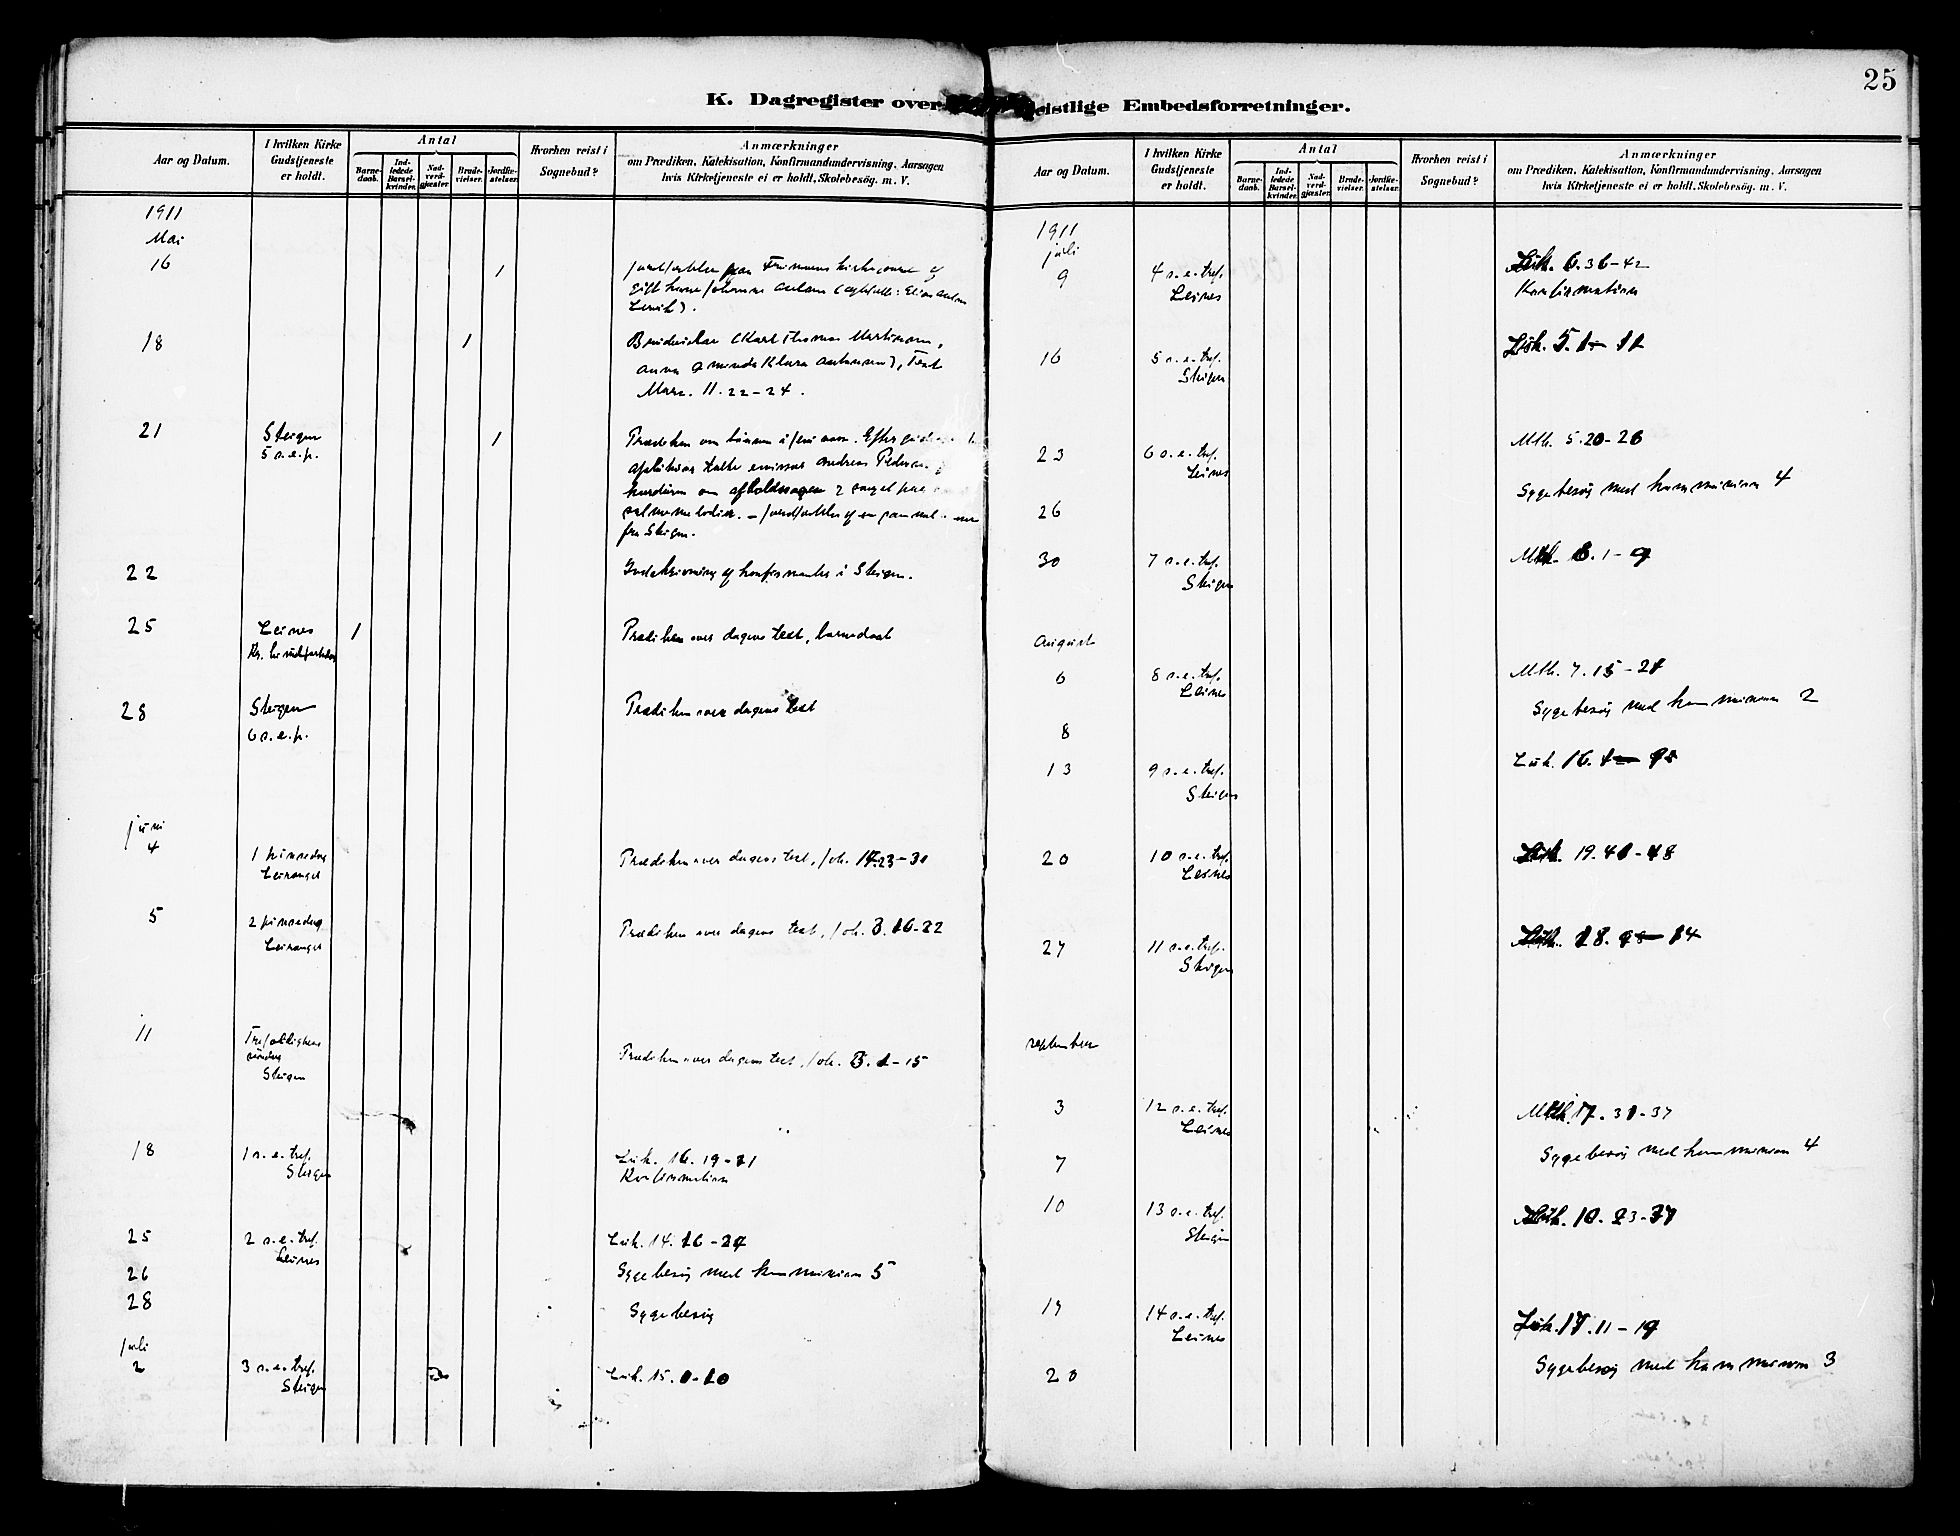 25
K. Dagregister over geistlige Embedsforretninger.
Aar og Datum.
I hvilken Kirke
Gudstjeneste
er holdt.
Antal
Barne-
daab.
Ind-
ledede
Barsel-
kvinder.
Nad-
verd-
gjæster.
Brude-
vielser.
Jordfæ-
stelser.
Hvorhen reist i
Sognebud?
Anmærkninger
om Prædiken, Katekisation, Konfirmandundervisning, Aarsagen
hvis Kirketjeneste ei er holdt, Skolebesög. m. V.
1911
Mai
16
1
Jordfæstelse paa
gift kone Johanna
18
1
Brudevielse (Karl Thomas Martinsen,
Anna Aminda Klara Antonsen), Text
Marc. 11. 22-24.
21
Steigen
5 s.e.p.
1
Prædiken om bönnen i Jesu navn. Efter
talte emissær Andreas Pedersen
om afholdssagen
salmemelodier. - Jordfæstelse af en gammel
fra Steigen.
22
Indskrivning af konfirmanter i Steigen.
25
Leines
Kr. himmelfartsdag
1
Prædiken over dagens text, barnedaab
28
Steigen
6 s.e.p.
Prædiken over dagens text
juni
4
1 pinsedag
Leiranger
Prædiken over dagens text, Joh. 14.23-30
5
2 pinsedag
Leiranger
Prædiken over dagens text, Joh. 3. 16-22
11
Trefoldigheds
söndag
Steigen
Prædiken over dagens text, Joh. 3. 1-15
18
1 s.e. tref.
Steigen
Luk. 16. 19-31
Konfirmation
25
2 s.e. tref.
Leines
Luk. 14. 16-24
26
Sygebesög med kommunion 5
28
Sygebesög
juli
2
3 s.e. tref.
Steigen
Luk. 15. 1-10
Aar og Datum.
I hvilken Kirke
Gudstjeneste
er holdt.
Antal
Barne-
daab.
Ind-
ledede
Barsel-
kvinder.
Nad-
verd-
gjæster.
Brude-
vielser.
Jordfæ-
stelser.
Hvorhen reist i
Sognebud?
Anmærkninger
om Prædiken, Katekisation, Konfirmandundervisning, Aarsagen
hvis Kirketjeneste ei er holdt, Skolebesög. m. V.
1911
juli
9
4 s.e. tref.
Leines
Luk. 6. 36-42
Konfirmation
16
5 s.e. tref.
Steigen
Luk. 5. 1-11
23
6 s.e. tref.
Leines
Mth. 5. 20-26
26
Sygebesög med kommunion 4
30
7 s.e. tref.
Steigen
8. 1-9
August
6
8 s.e. tref.
Leines
Mth. 7. 15-21
8
Sygebesög med kommunion 2
13
9 s.e. tref.
Steigen
Luk. 16.
20
10 s.e. tref.
Leines
Luk. 19. 41-48
27
11 s.e. tref.
Steigen
Luk. 18. 14
september
3
12 s.e. tref.
Leines
7. 31-37
7
Sygebesög med kommunion 4
10
13 s.e. tref.
Steigen
Luk. 10. 23-37
14 s.e. tref.
Leines
Luk. 17. 11-19
20
Sygebesög med kommunion 3